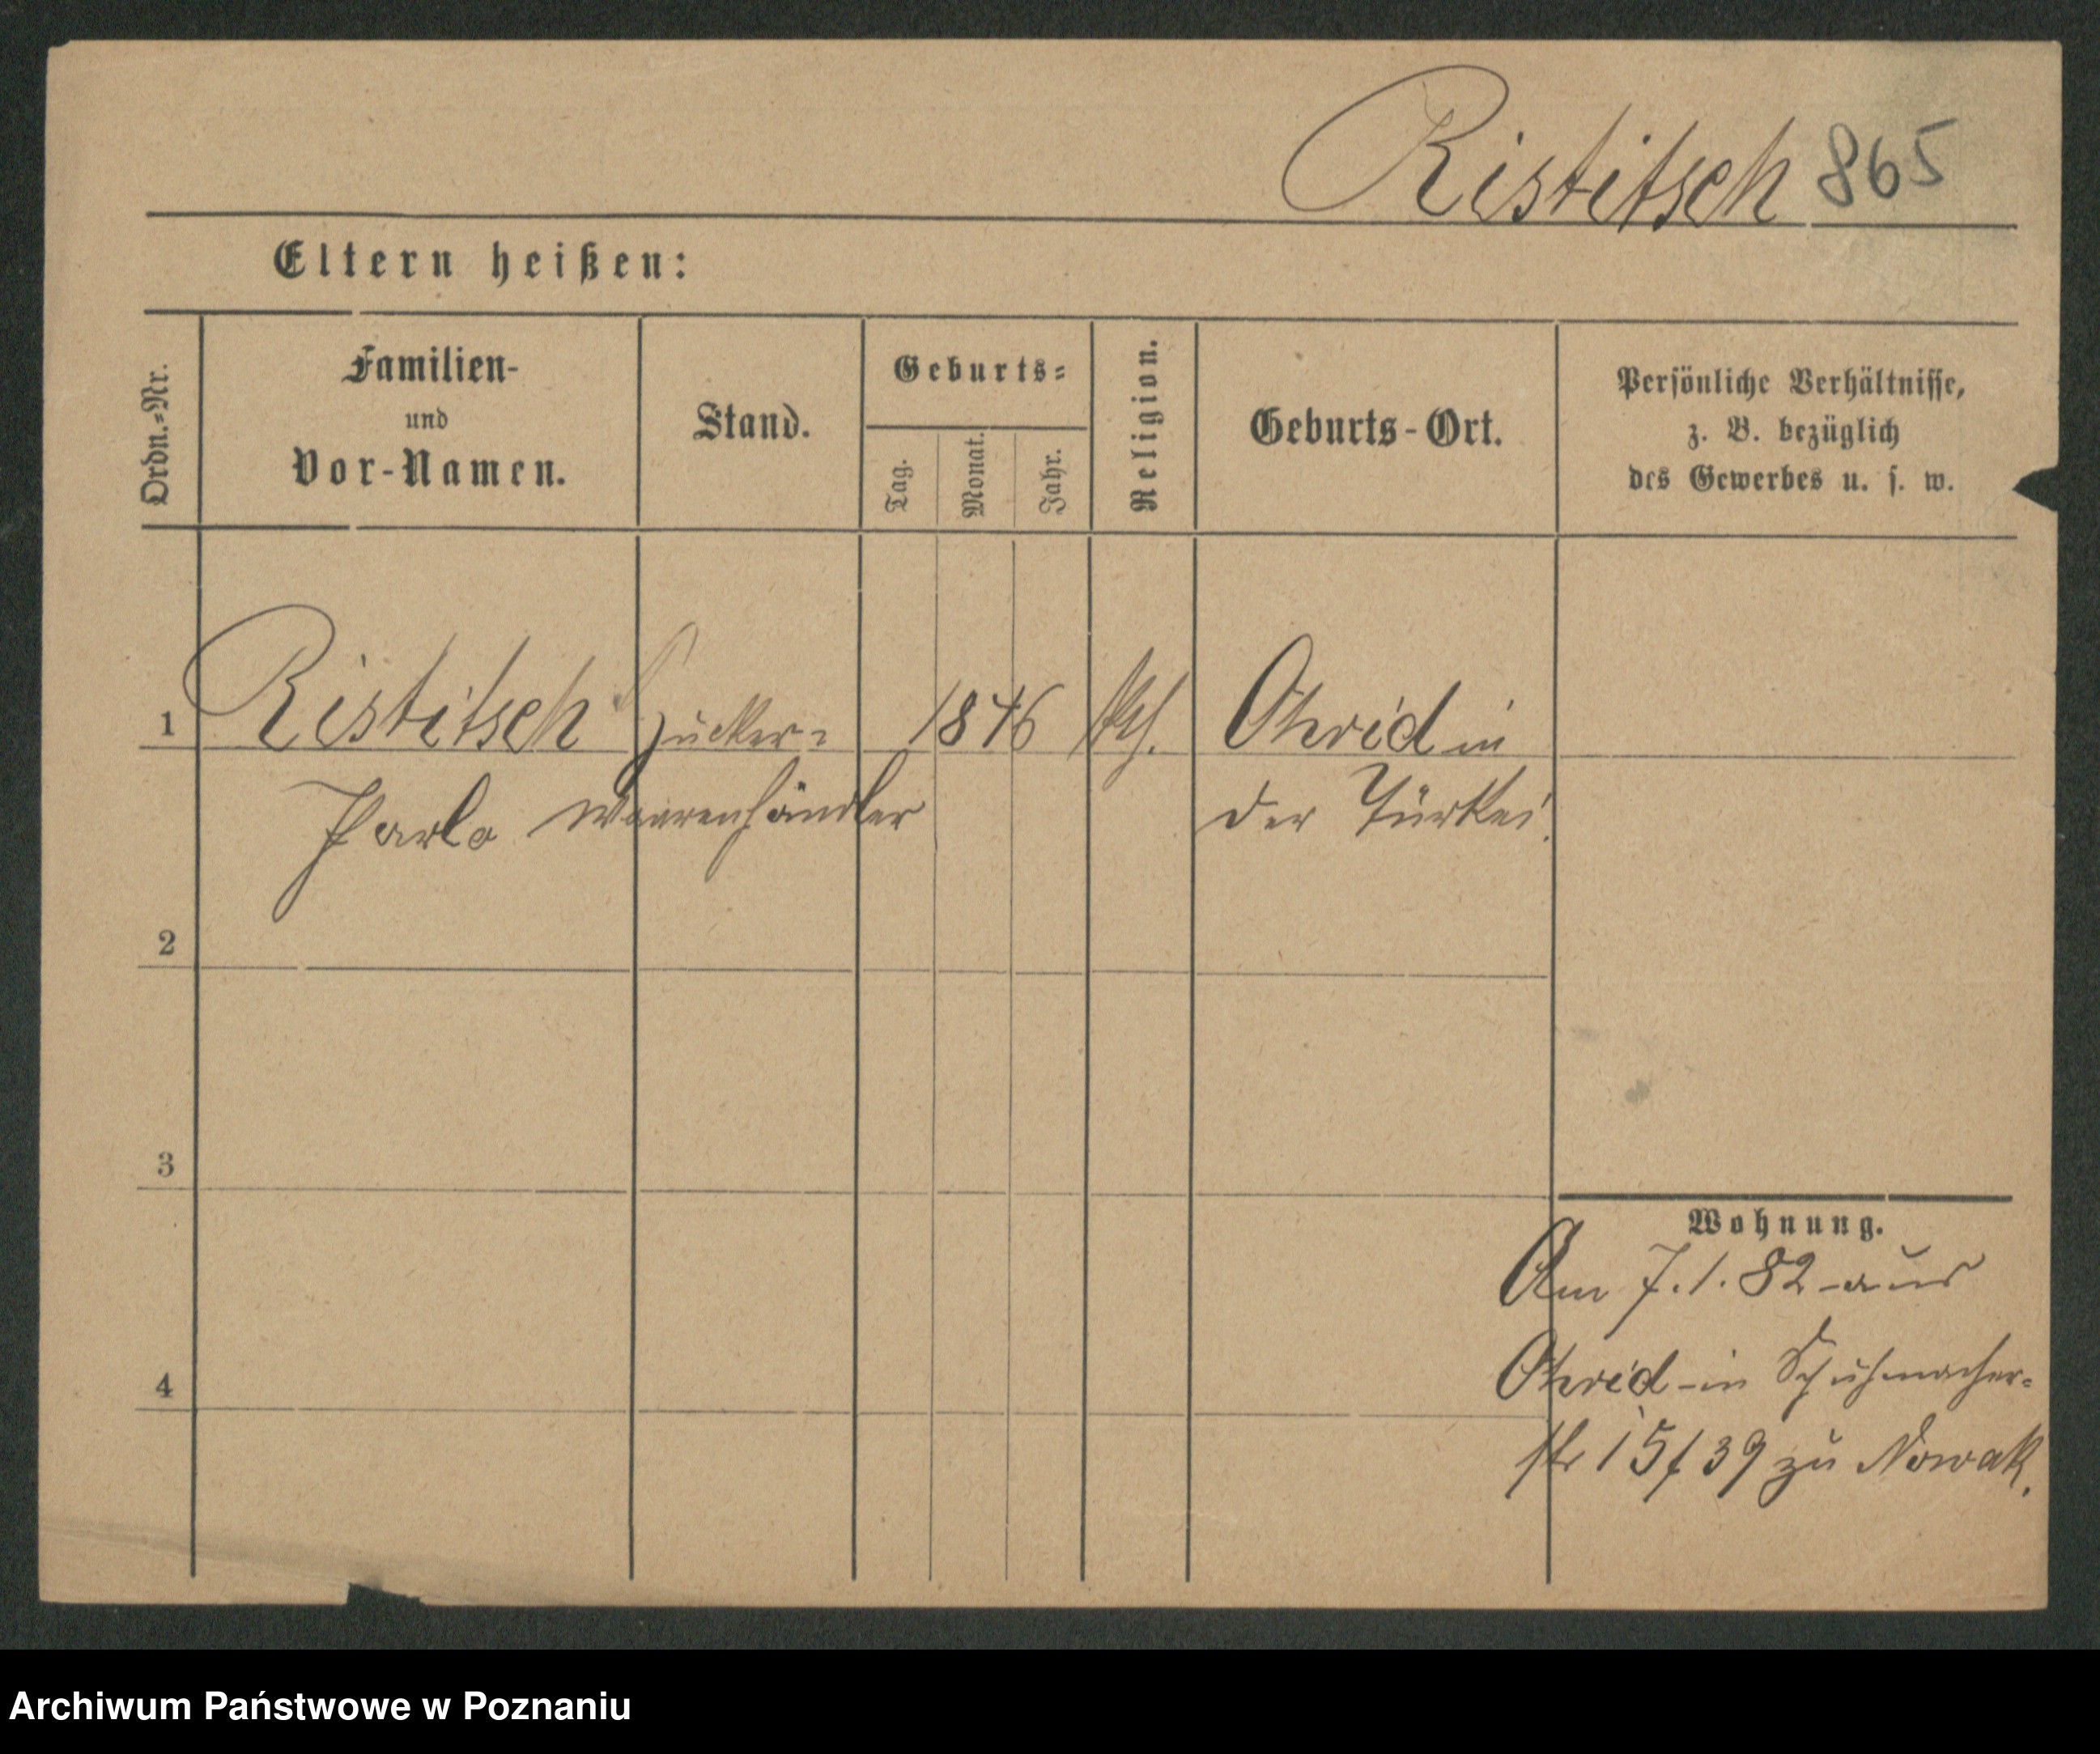 Ristitsch 865
Eltern heißen:
Ordn.=Nr.
Familien-
und
Vor-Namen.
Stand.
Geburts=
Tag.
Monat.
Jahr.
Religion.
Geburts-Ort.
Persönliche Verhältnisse,
z. B. bezüglich
des Gewerbes u. s. w.
1 Ristitsch Zucker= 1846 Ohrid in
Parlo waarenhändler der Türkei.
2
3
4
Wohnung.
Am 7.1.82 aus
Ohrid in Schuhmacher=
str 15/39 zu Nowak.
Archiwum Państwowe w Poznaniu